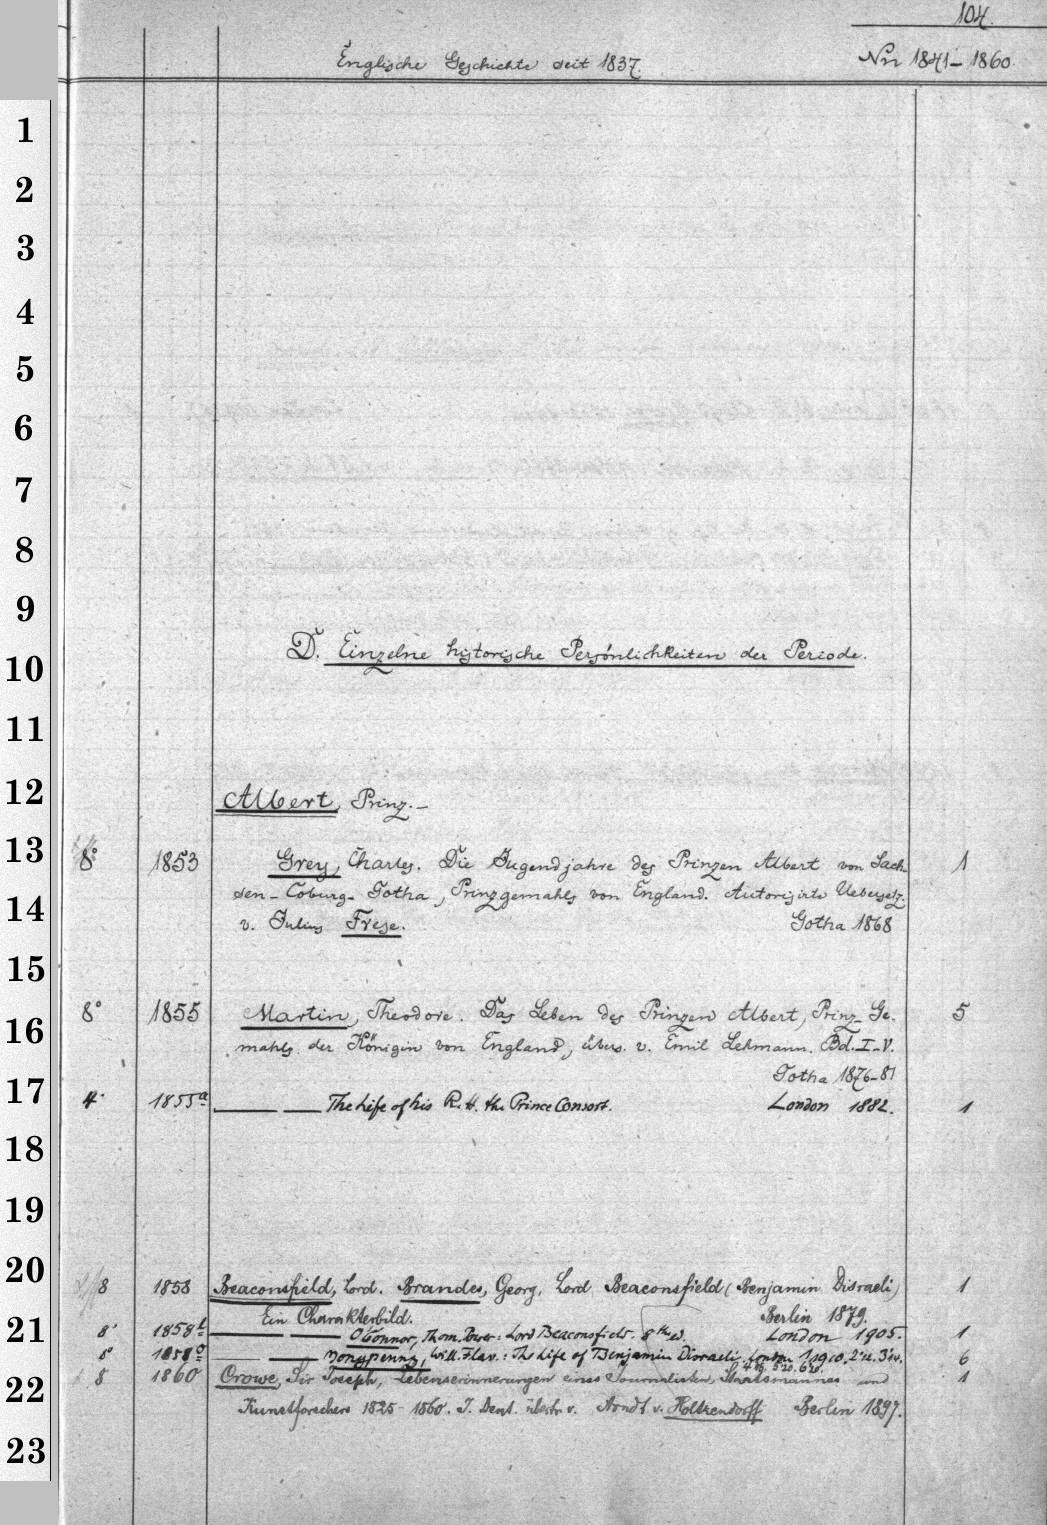 104.
Englische Geschichte seit 1837.
Nrn 1841-1860.
1
2
3
4
5
6
7
8
9
D. Einzelne historische Persönlichkeiten der Periode.
10
11
12
Albert, Prinz.-
13
8° 1853 Grey, Charles. Die Jugendjahre des Prinzen Albert von Sach- 1
sen-Coburg-Gotha, Prinzgemahls von England. Autorisirte Uebersetz.
14
v. Julius Frese. Gotha 1868
15
8° 1855 Martin, Theodore. Das Leben des Prinzen Albert, Prinz-Ge- 5
16
mahls der Königin von England, übers. v. Emil Lehmann. Bd. I-V.
Gotha 1876-81
17
4° 1855a — — The Life of his R. H. the Prince Consort. London 1882. 1
18
19
20
8 1858 Beaconsfield, Lord. Brandes, Georg, Lord Beaconsfield (Benjamin Disraeli) 1
Ein Charakterbild. Berlin 1879.
21
8° 1858b — — O'Connor, Thom. Power: Lord Beaconsfield. 8th ed. London 1905. 1
8° 1858c — — Monypenny, Will. Flav.: The Life of Benjamin Disraeli. London 1.1910. 2. 3. 6
8 1860 Crowe, Sir Joseph, Lebenserinnerungen eines Journalisten, Staatsmannes und 1
22
Kunstforschers 1825-1860. I. Deut. übstr. v. Arndt v. Holtzendorff Berlin 1897.
23